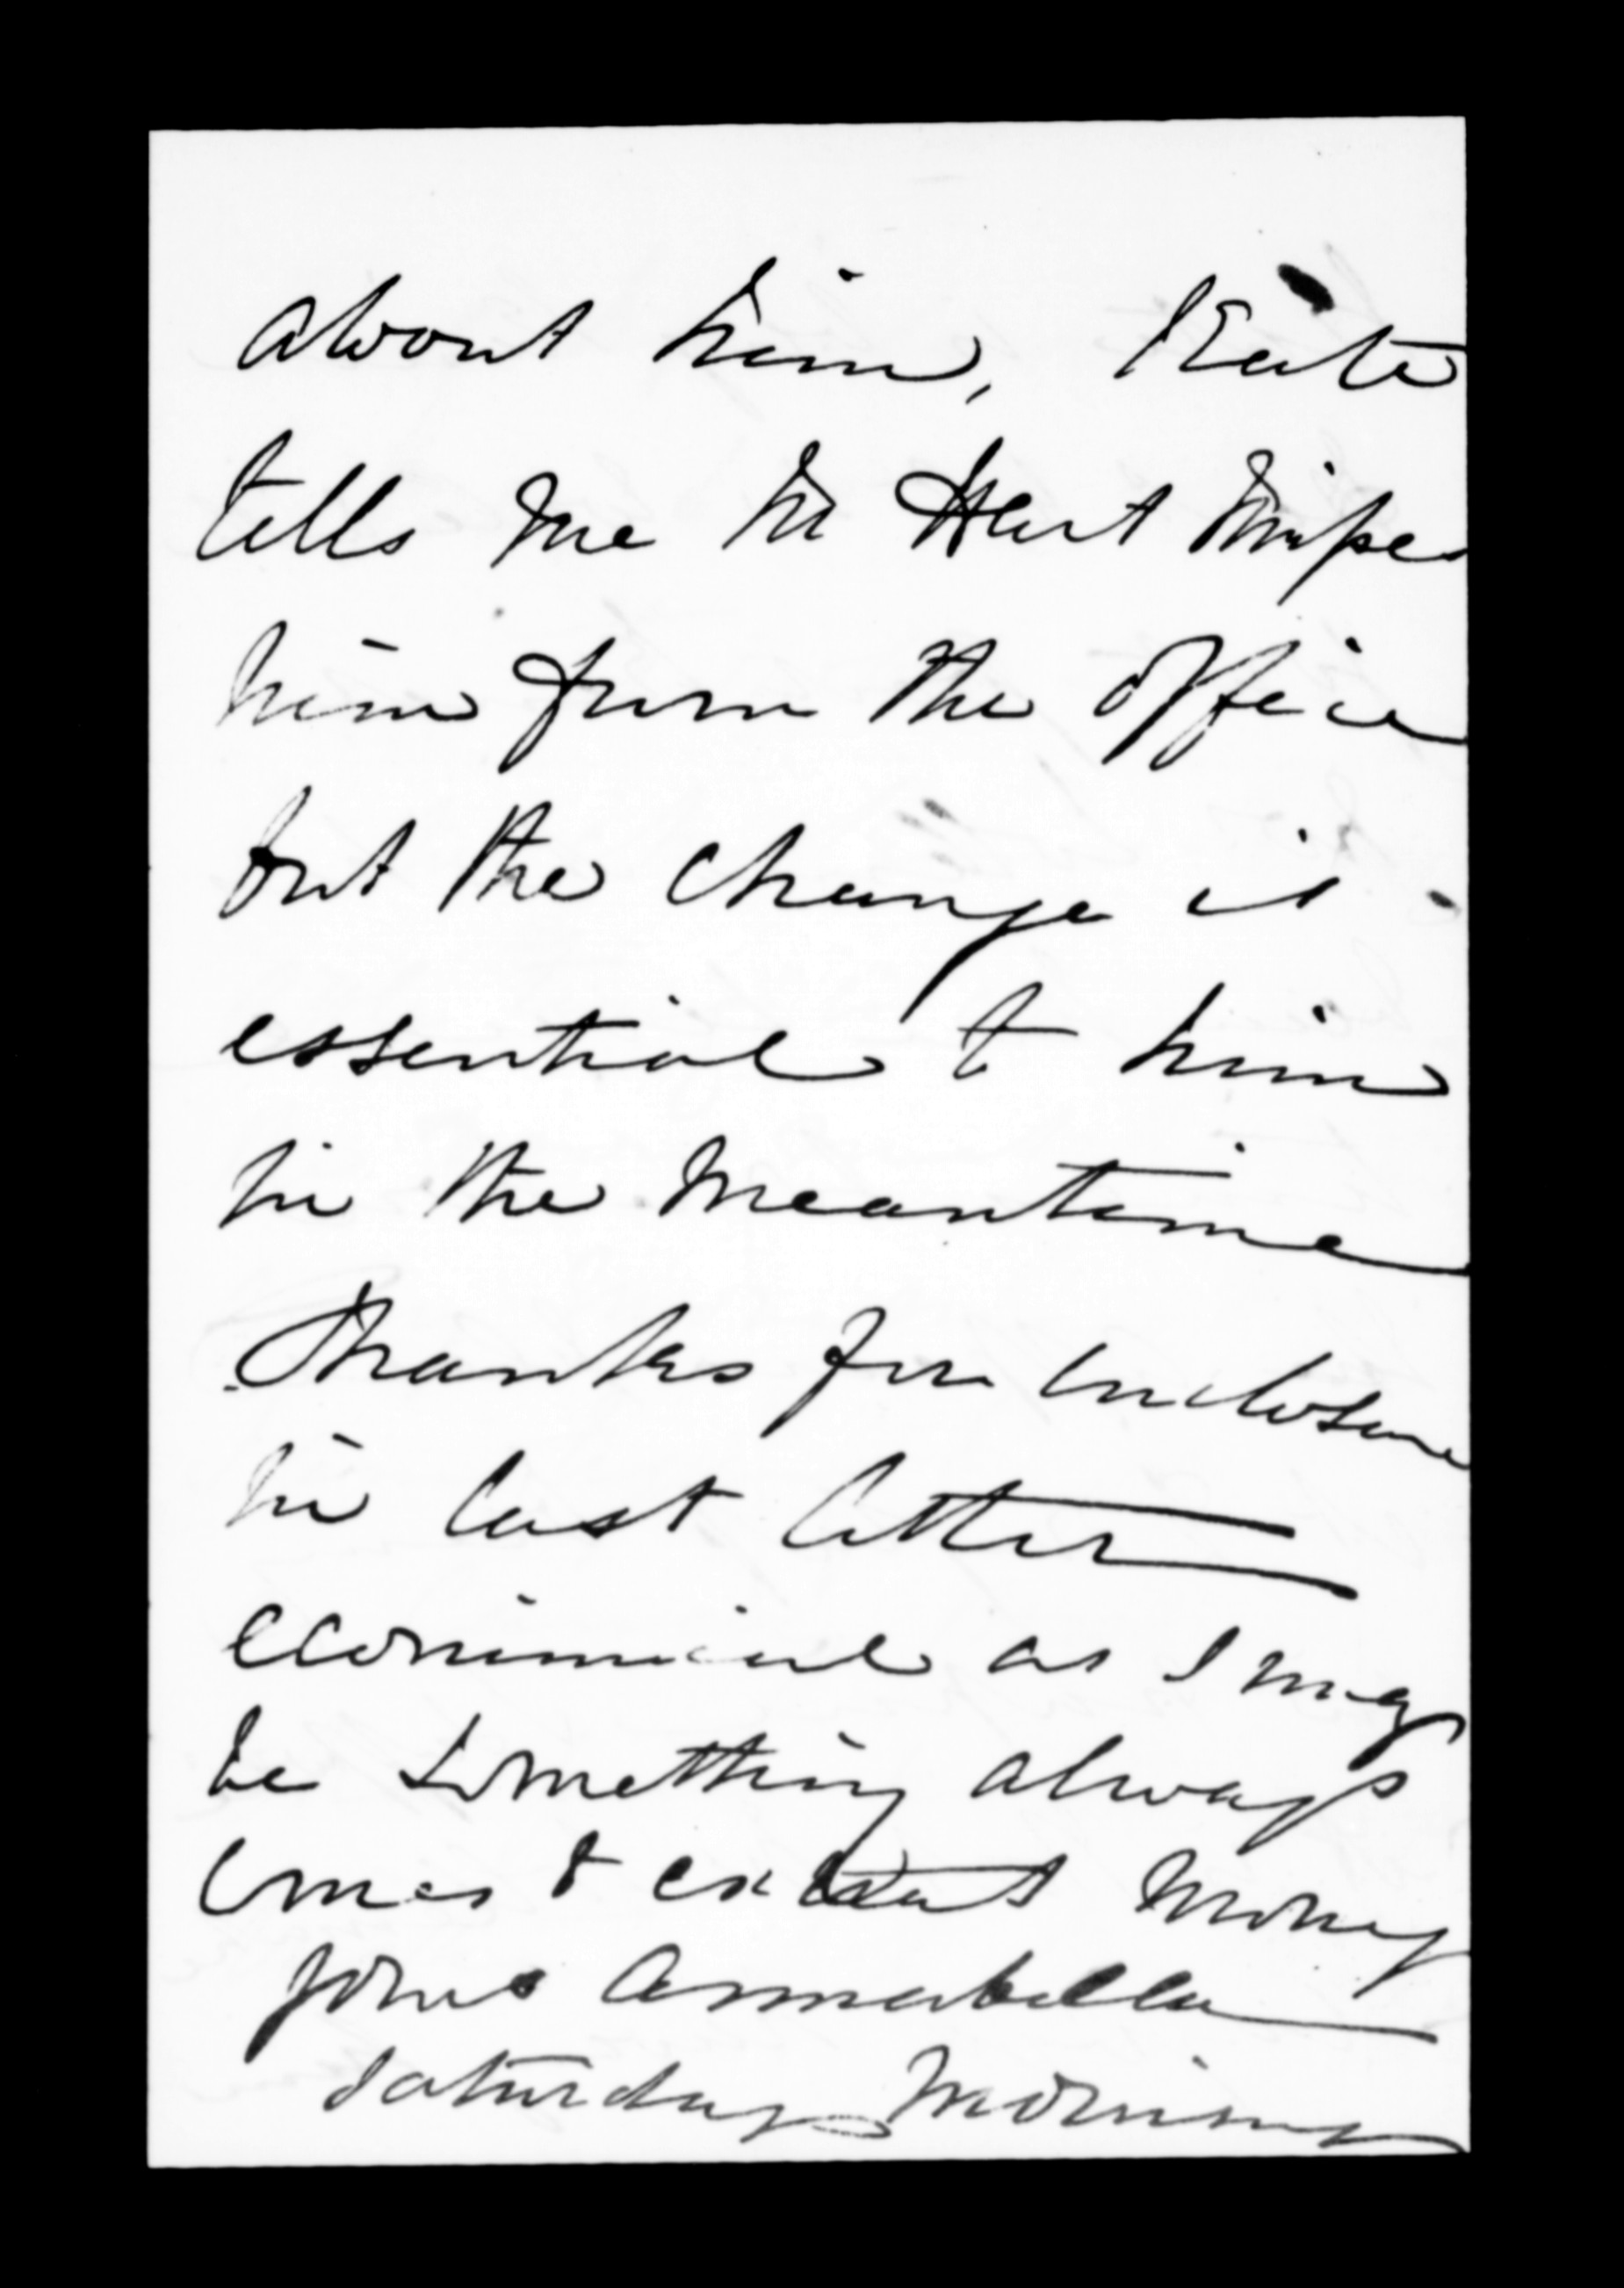 about him, Kate
tells me Mr Hart misses
him from the office
but the change is
essential to him
in the meantime
Thanks for enclosure
in last letter
econimical as I may
be something always
comes to extract money
yours Annabella
Saturday Morning